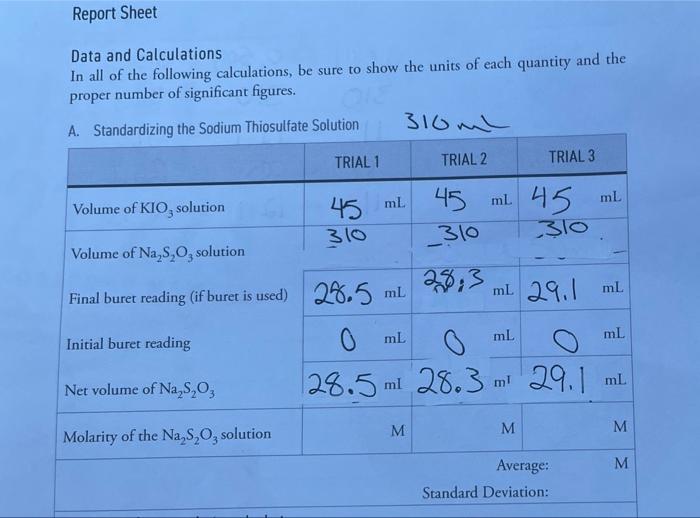 Report Sheet
Data and Calculations
In all of the following calculations, be sure to show the units of each quantity and the
proper number of significant figures.
A. Standardizing the Sodium Thiosulfate Solution 310 mL
TRIAL 1 TRIAL 2 TRIAL 3
Volume of KIO₃ solution 45 mL 45 mL 45 mL
Volume of Na₂S₂O₃ solution 310 310 310
Final buret reading (if buret is used) 28.5 mL 28.3 mL 29.1 mL
Initial buret reading 0 mL 0 mL 0 mL
Net volume of Na₂S₂O₃ 28.5 ml 28.3 ml 29.1 mL
Molarity of the Na₂S₂O₃ solution M M M
Average: M
Standard Deviation: